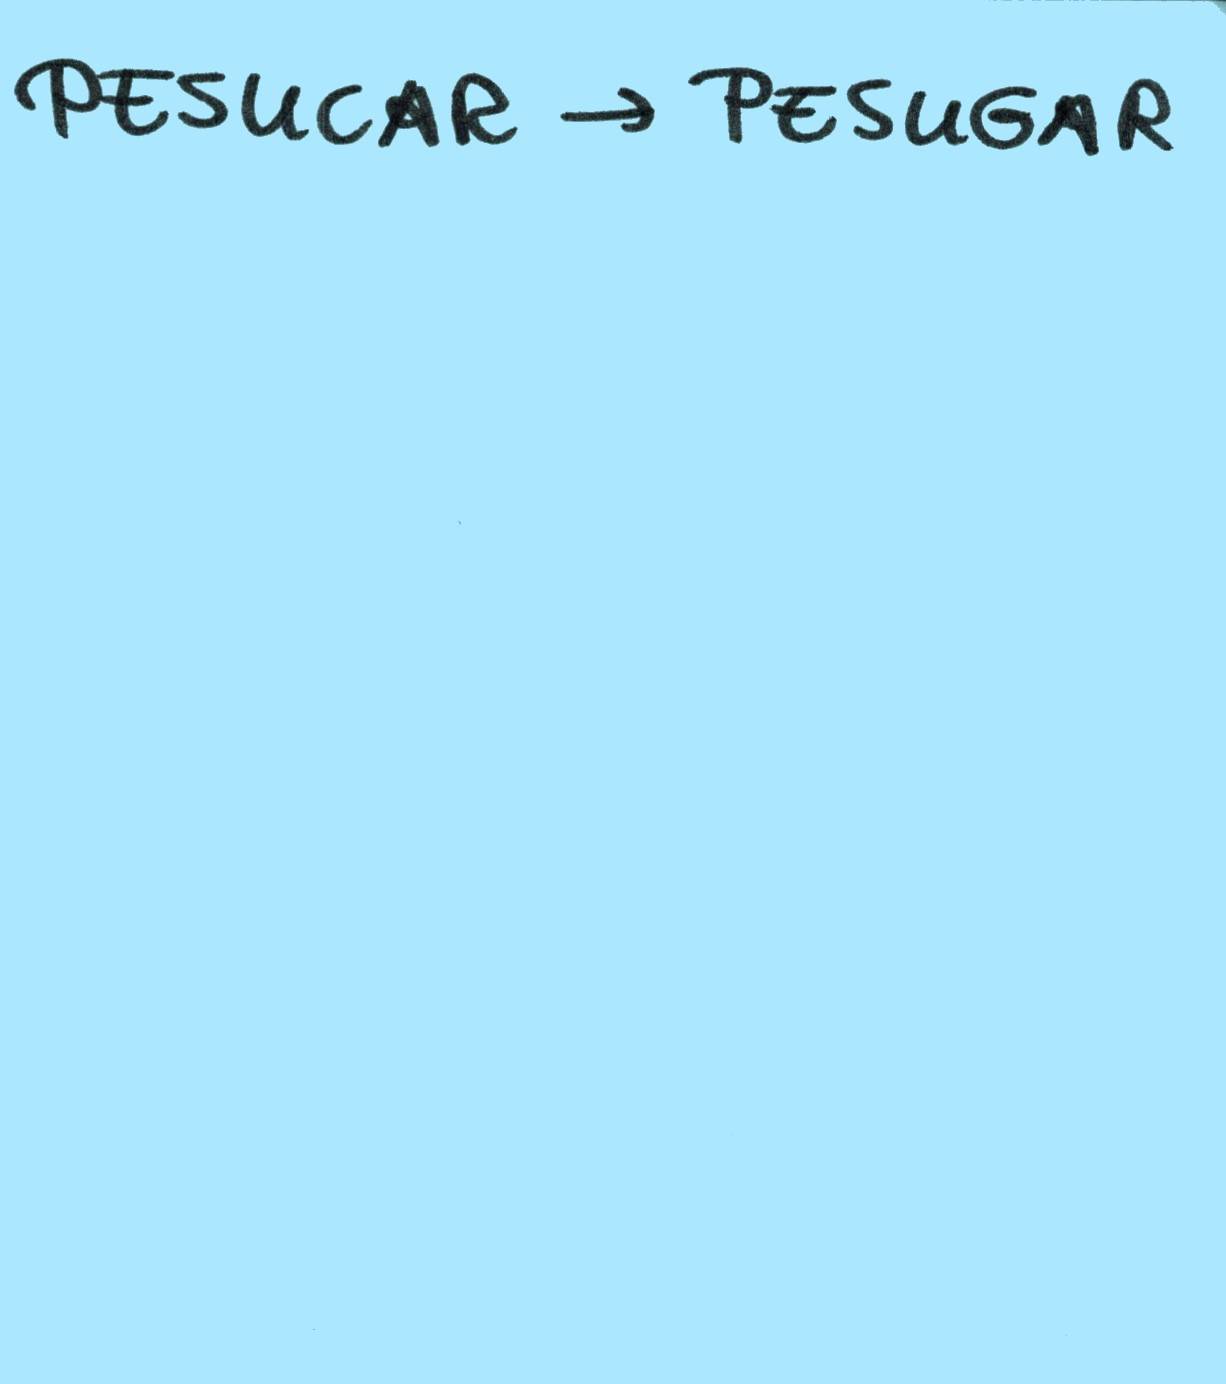 PESUCAR → PESUGAR